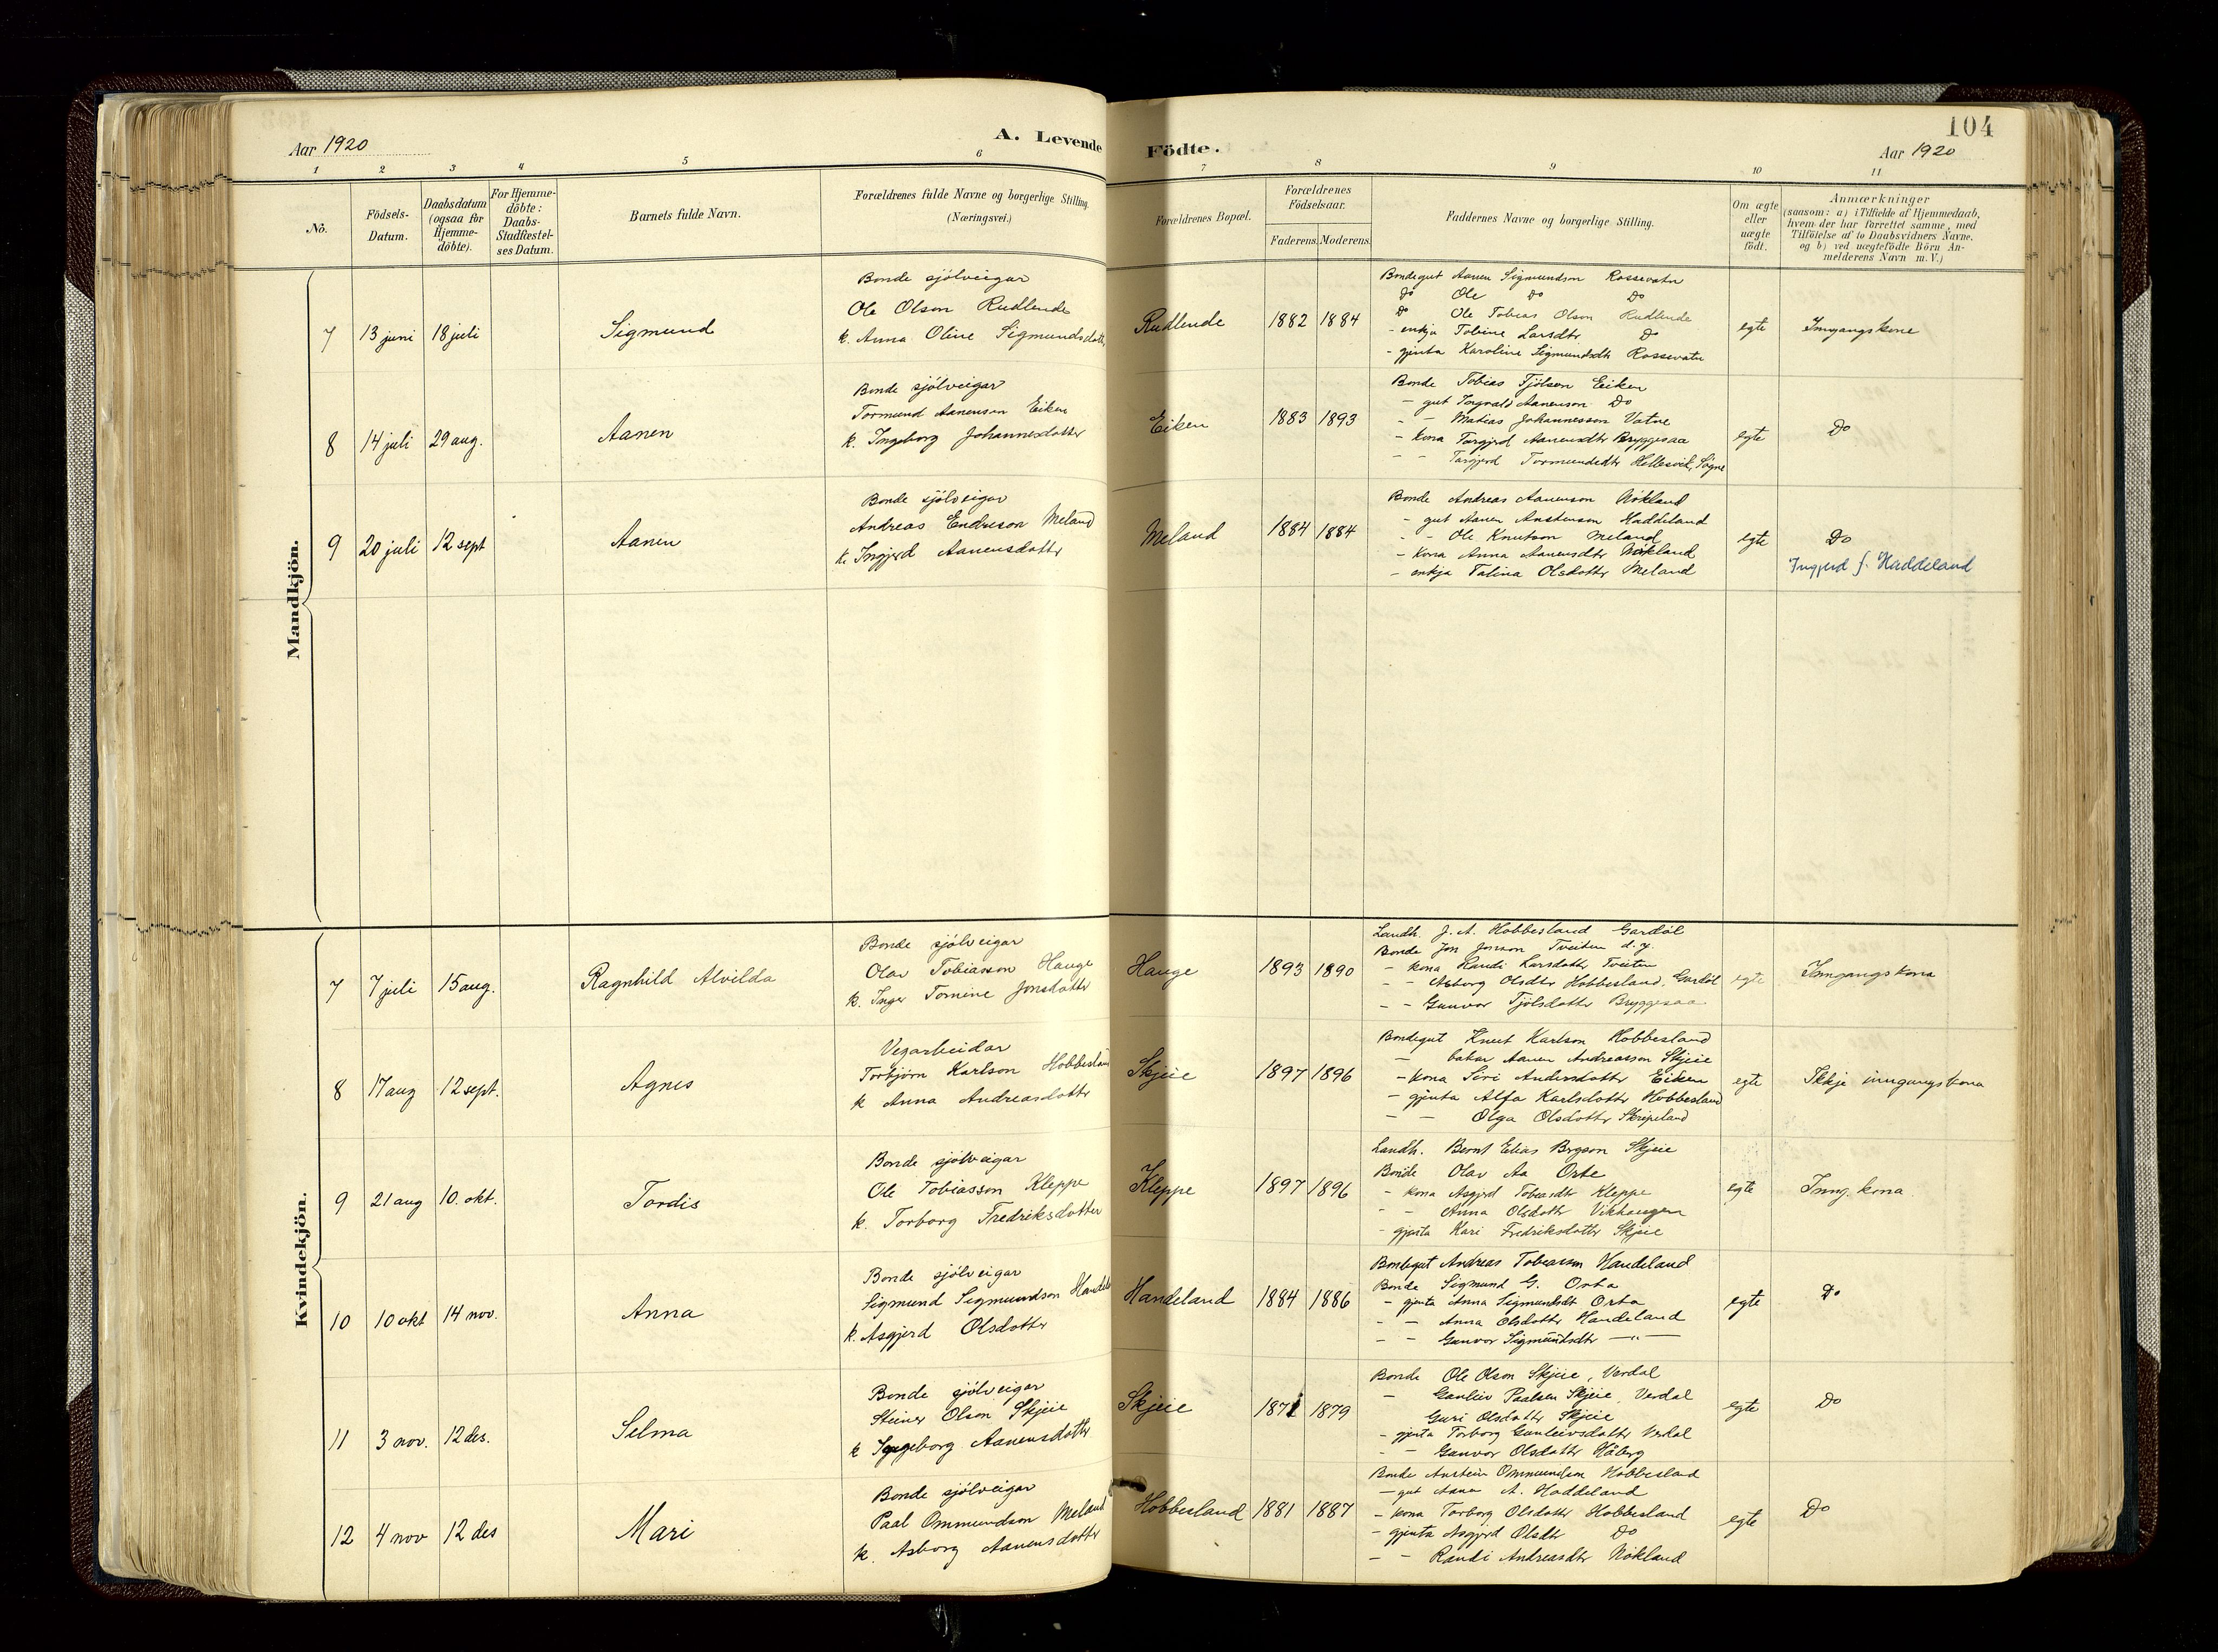 104
Aar 1920
A. Levende Födte.
Aar 1920
1 2 3 4 5 6 7 8 9 10 11
No.
Födsels-Datum.
Daabsdatum (ogsaa for Hjemme-döbte).
For Hjemme-döbte: Daabs-Stadfæstel-ses Datum.
Barnets fulde Navn.
Forældrenes fulde Navne og borgerlige Stilling. (Næringsvei.)
Forældrenes Bopæl.
Forældrenes Födselsaar.
Faderens. Moderens.
Faddernes Navne og borgerlige Stilling.
Om ægte eller uægte födt.
Anmærkninger
(saasom: a) i Tilfælde af Hjemmedaab,
hvem der har forrettet samme, med
Tilföielse af to Daabsvidners Navne,
og b) ved uægtefödte Börn An-
melderens Navn m. V.)
Mandkjön.
7 13 juni 18 juli Sigmund
Bonde sjölveigar
Ole Olson Rudlende
k. Anna Oline Sigmundsdotter
Rudlende 1882 1884
Bondegut Aanen Sigmundson Rossevatn
Do Ole Do Do
Do Ole Tobias Olson Rudlende
- enkja Tobine Larsdtr Do
- gjenta Karoline Sigmundsdtr Rossevatn
egte Inngangskone
8 14 juli 29 aug. Aanen
Bonde sjölveigar
Tormund Aanenson Eiken
k. Ingeborg Johannesdotter
Eiken 1883 1893
Bonde Tobias Tjölson Eiken
- gut Ingvald Aanenson Do
- - Matias Johannesson Vatne
- kona Torgjerd Aanensdtr Bryggesaa
- - Targjerd Tormundsdtr Hellesvik, Sögne
egte Do
9 20 juli 12 sept Aanen
Bonde sjölveigar
Andreas Endreson Meland
k. Ingjerd Aanensdotter
Meland 1884 1884
Bonde Andreas Aanenson Nökland
- gut Aanen Anstenson Haddeland
- - Ole Knutson Meland
- Kona Anna Aanensdtr Nökland
- enkja Talina Olsdotter Meland
egte Do
Ingjerd f. Haddeland
Kvindekjön.
7 7 juli 15 aug. Ragnhild Alvilda
Bonde sjölveigar
Olav Tobiasson Hauge
k. Inger Tomine Jonsdotter
Hauge 1893 1890
Landh. J. A. Hobbesland Gardöl
Bonde Jon Jonson Tveiten d.y.
- kona Randi Larsdotter Tveiten
- - Asborg Olsdtr Hobbesland, Gardöl
- - Gunvor Tjölsdotter Bryggesaa
egte Inngangskona
8 17 aug 12 sept. Agnes
Vegarbeidar
Torbjörn Karlson Hobbesland
k Anna Andreasdotter
Skjeie 1897 1896
Bondegut Knut Karlson Hobbesland
- bakar Aanen Andreasson Skjeie
- kona Siri Andersdotter Eiken
- gjenta Alfa Karlsdotter Hobbesland
- - Olga Olsdotter Skripeland
egte Ikkje inngangskona
9 21 aug 10. okt. Tordis
Bonde sjölveigar
Ole Tobiasson Kleppe
k. Torborg Fredriksdotter
Kleppe 1897 1896
Landh. Bernt Elias Bergson Skjeie
Bonde Olav Aa Orte
- kona Asgjerd Tobiasdtr Kleppe
- - Anna Olsdotter Vikhaugen
- gjenta Kari Fredriksdotter Skjeie
egte Inng. kona
10 10 okt 14 nov. Anna
Bonde sjölveigar
Sigmund Sigmundson Handel
k. Asgjerd Olsdotter
Handeland 1884 1886
Bondegut Andreas Tobiasson Handeland
Bonde Sigmund G. Orta
- gjenta Anna Sigmundsdt Orta
- - Anna Olsdotter Handeland
- - Gunvor Sigmundsdtr —"—
egte Do
11 3 nov. 12 des. Selma
Bonde sjölveigar
Steiner Olson Skjeie
k Ingeborg Aanensdotter
Skjeie 1871 1879
Bonde Ole Olson Skjeie, Verdal
- Gunleiv Paalson Skjeie, Verdal
Guri Olsdotter Skjeie
- gjenta Torborg Gunleivsdotter Verdal
- - Gunvor Olsdotter Håberg
egte Do
12 4 nov 12 des Mari
Bonde sjölveigar
Paal Ommundson Meland
k. Asborg Aanensdotter
Hobbesland 1881 1887
Bonde Anstein Ommundson Hobbesland
- gut Aanen A. Haddeland
- kona Torborg Olsdotter Hobbesland
- gjenta Asgjerd Olsdtr Do
- - Randi Andreasdtr Nökland
egte Do